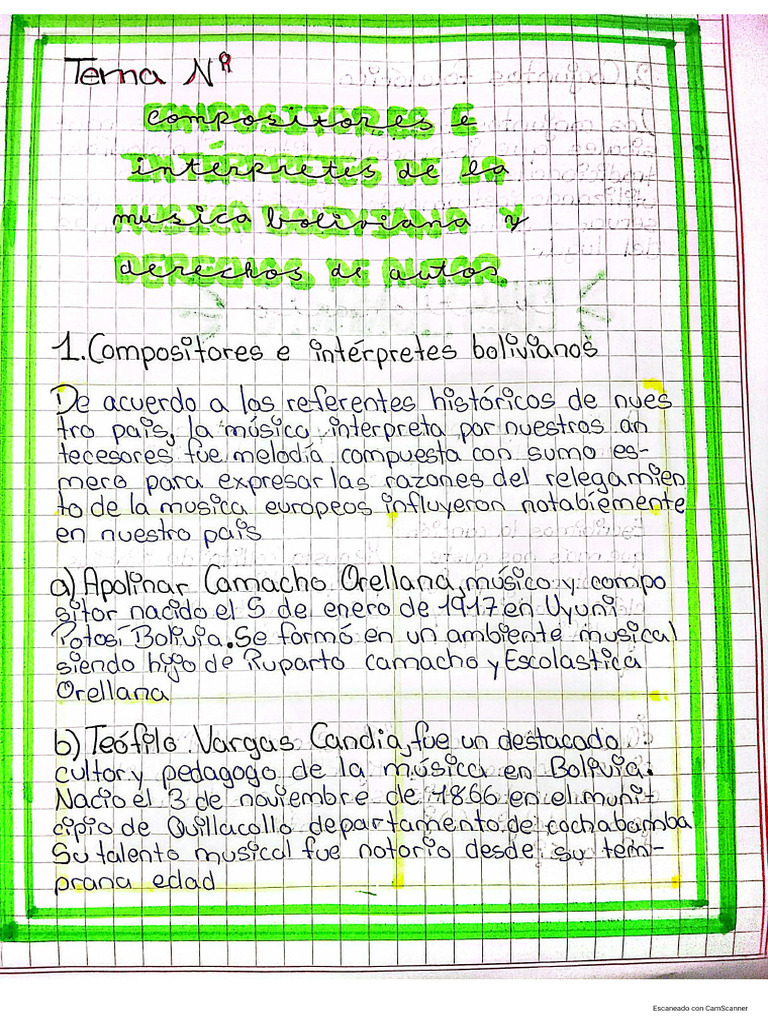 Tema Nº
compositores e
intérpretes de la
musica boliviana y
derechos de autor
1. Compositores e intérpretes bolivianos
De acuerdo a los referentes históricos de nues
tro pais, la música interpreta por nuestros an
tecesores fue melodía compuesta con sumo es-
mero para expresar las razones del relegamien
to de la musica europeos influyeron notabiemente
en nuestro pais
a) Apolinar Camacho Orellana, músico y compo
sitor nacido el 5 de enero de 1917 en Uyuni
Potosí Bolivia. Se formó en un ambiente musical
siendo hijo de Ruparto camacho y Escolastica
Orellana
b) Teófilo Vargas Candia, fue un destacado
cultor y pedagogo de la música en Bolivia.
Nacio el 3 de noviembre de 1866 en el muni-
cipio de Quillacollo departamento de cochabamba
Su talento musical fue notorio desde su tem-
prana edad
Escaneado con CamScanner